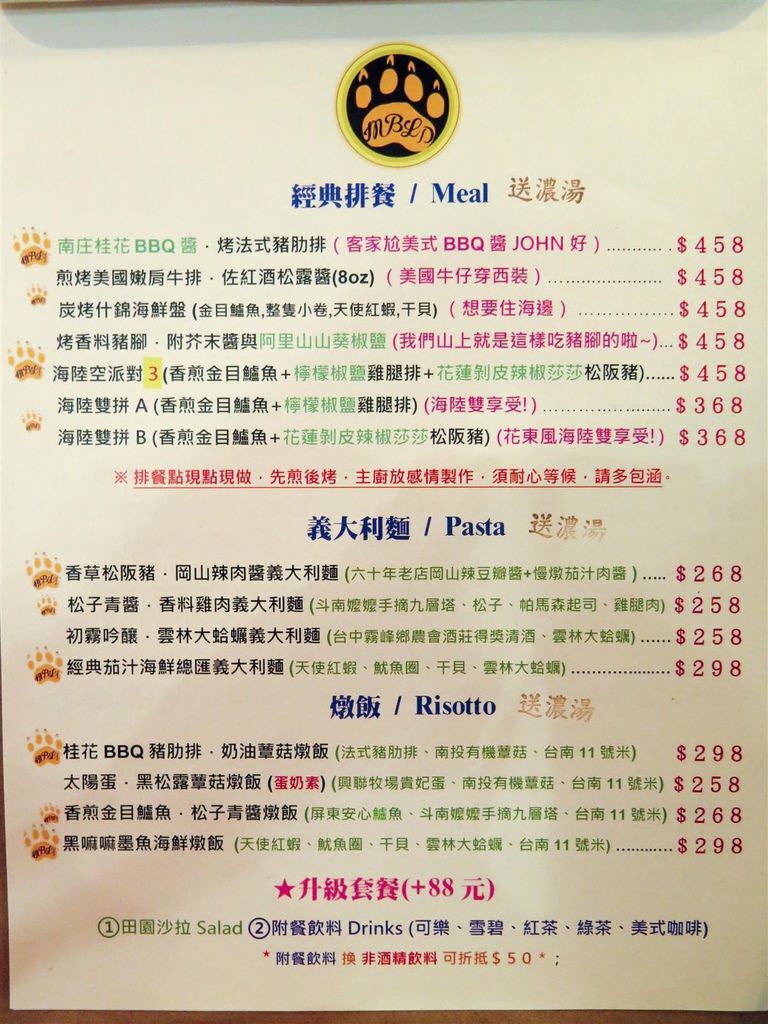 MBLD
經典排餐 / Meal 送濃湯
南庄桂花 BBQ 醬．烤法式豬肋排 ( 客家尬美式 BBQ 醬 JOHN 好 ) ............ $458
煎烤美國嫩肩牛排．佐紅酒松露醬(8oz) ( 美國牛仔穿西裝 ) ..................... $458
炭烤什錦海鮮盤 (金目鱸魚,整隻小卷,天使紅蝦,干貝) ( 想要住海邊 ) ................ $458
烤香料豬腳．附芥末醬與阿里山山葵椒鹽 (我們山上就是這樣吃豬腳的啦~)... $458
海陸空派對 3 (香煎金目鱸魚+檸檬椒鹽雞腿排+花蓮剝皮辣椒莎莎松阪豬)...... $458
海陸雙拼 A (香煎金目鱸魚+檸檬椒鹽雞腿排) (海陸雙享受!) ...................... $368
海陸雙拼 B (香煎金目鱸魚+花蓮剝皮辣椒莎莎松阪豬) (花東風海陸雙享受!) $368
※ 排餐點現點現做．先煎後烤．主廚放感情製作．須耐心等候．請多包涵。
義大利麵 / Pasta 送濃湯
香草松阪豬．岡山辣肉醬義大利麵 (六十年老店岡山辣豆瓣醬+慢燉茄汁肉醬 ) ..... $268
松子青醬．香料雞肉義大利麵 (斗南嬤嬤手摘九層塔、松子、帕馬森起司、雞腿肉) $258
初霧吟釀．雲林大蛤蠣義大利麵 (台中霧峰鄉農會酒莊得獎清酒、雲林大蛤蠣) ...... $258
經典茄汁海鮮總匯義大利麵 (天使紅蝦、魷魚圈、干貝、雲林大蛤蠣) ..................... $298
燉飯 / Risotto 送濃湯
桂花 BBQ 豬肋排．奶油蕈菇燉飯 (法式豬肋排、南投有機蕈菇、台南 11 號米) $298
太陽蛋．黑松露蕈菇燉飯 (蛋奶素) (興聯牧場貴妃蛋、南投有機蕈菇、台南 11 號米) $258
香煎金目鱸魚．松子青醬燉飯 (屏東安心鱸魚、斗南嬤嬤手摘九層塔、台南 11 號米) $268
黑嘛嘛墨魚海鮮燉飯 (天使紅蝦、魷魚圈、干貝、雲林大蛤蠣、台南 11 號米) ........... $298
★升級套餐(+88 元)
①田園沙拉 Salad ②附餐飲料 Drinks (可樂、雪碧、紅茶、綠茶、美式咖啡)
* 附餐飲料 換 非酒精飲料 可折抵$50*；